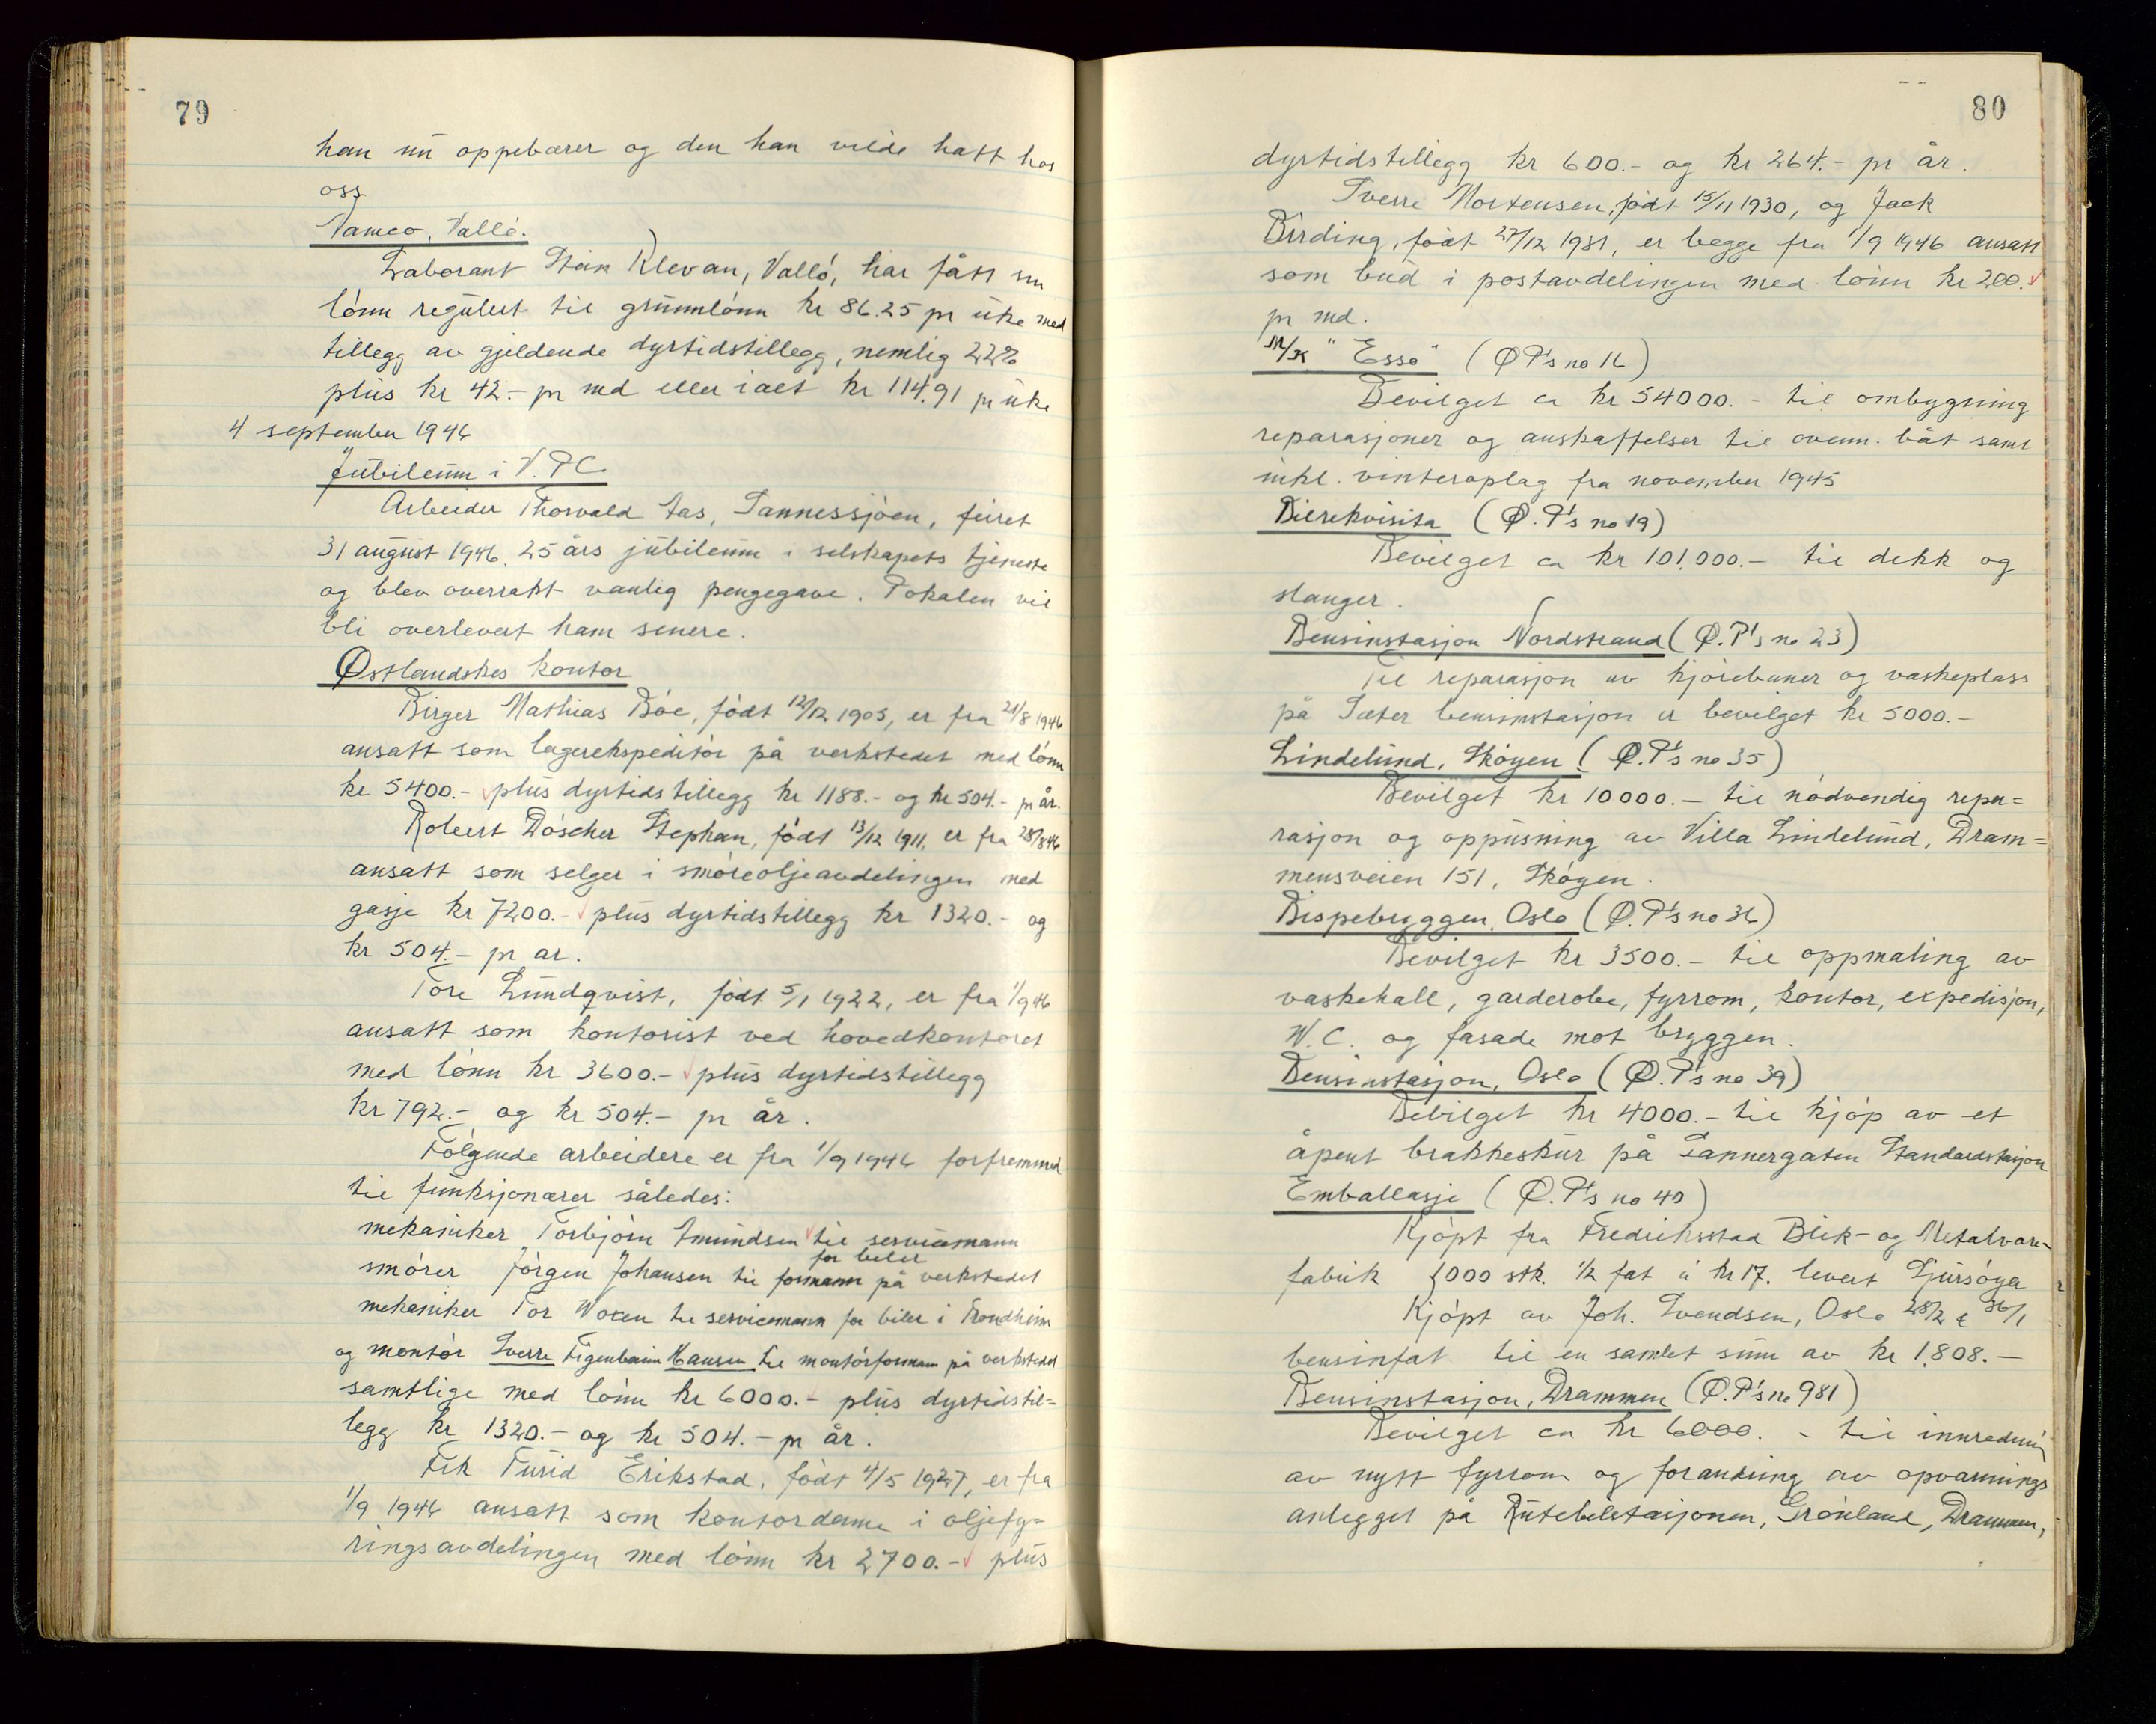 79
han nu oppebærer og den han vilde hatt hos
oss
Vameo, Vallö.
Laborant Stein Klevan, Vallö, har fått sin
lönn regulert til grunnlönn kr 86.25 pr uke med
tillegg av gjeldende dyrtidstillegg, nemlig 22%
plus kr 42.- pr md eller ialt kr 114.91 pr uke
4 september 1946
Jubileum i V.P.C.
Arbeider Thorvald Aas, Tannessjöen, feiret
31 august 1946, 25 års jubileum i selskapets tjeneste
og blev overrakt vanlig pengegave. Pokalen vil
bli overlevert ham senere.
Østlandskes kontor
Birger Mathias Böe, födt 12/12 1905, er fra 21/8 1946
ansatt som lagerekspeditör på verkstedet med lönn
kr 5400.- plus dyrtidstillegg kr 1188.- og kr 504.- pr år.
Robert Döscher Stephan, födt 13/12 1911, er fra 28/8 46
ansatt som selger i smöreoljeavdelingen med
gasje kr 7200.- plus dyrtidstillegg kr 1320.- og
kr 504.- pr ar.
Tore Lundqvist, födt 5/1 1922, er fra 1/9 46
ansatt som kontorist ved hovedkontoret
med lönn kr 3600.- plus dyrtidstillegg
kr 792.- og kr 504.- pr år.
Fölgende arbeidere er fra 1/9 1946 forfremmed
til funksjonærer således:
mekaniker Torbjörn Amundsen til servicemann
for beler
smörer Jörgen Johansen til formann på verkstedet
mekaniker Tor Woxen til servicemann for biler i Trondheim
og montör Sverre Figenbaum Hansen til montörformann på verkstedet
samtlige med lönn kr 6000.- plus dyrtidstil=
legg kr 1320.- og kr 504.- pr år.
Frk Turid Erikstad, födt 4/5 1927, er fra
1/9 1946 ansatt som kontordame i oljefy=
ringsavdelingen med lönn kr 2700.- plus
80
dyrtidstillegg kr 600.- og kr 264.- pr år.
Sverre Mortensen, födt 15/11 1930, og Jack
Birding, födt 27/12 1931, er begge fra 1/9 1946 ansatt
som bud i postavdelingen med lönn kr 200.
pr md.
M/K "Esso" (Ø P's no 16)
Bevilget ca kr 54000.- til ombygning
reparasjoner og anskaffelser til ovenn. båt samt
inkl. vinteroplag fra november 1945
Bilrekvisita (Ø.P's no 19)
Bevilget ca kr 101.000.- til dekk og
slanger.
Bensinstasjon Nordstrand (Ø.P's no 23)
Til reparasjon av kjörebaner og vaskeplass
på Sæter bensinstasjon er bevilget kr 5000.-
Lindelund, Sköyen (Ø.P's no 35)
Bevilget kr 10000.- til nödvendig repa=
rasjon og oppusning av Villa Lindelund, Dram=
mensveien 151, Sköyen.
Bispebryggen, Oslo (Ø.P's no 36)
Bevilget kr 3500.- til oppmaling av
vaskehall, garderobe, fyrrom, kontor, expedisjon,
W.C. og fasade mot bryggen.
Bensinstasjon, Oslo (Ø.P's no 39)
Bevilget kr 4000.- til kjöp av et
åpent brakkeskur på Sannergaten Standardstasjon
Emballasje (Ø.P's no 40)
Kjöpt fra Fredriksstad Blik- og Metalvare-
fabrik 1000 stk. 1/2 fat à kr 17. levert Sjursöya
Kjöpt av Joh. Svendsen, Oslo 28/2 & 36/1
bensinfat til en samlet sum av kr 1.808.-
Bensinstasjon, Drammen (Ø.P's no 981)
Bevilget ca kr 6000.- til innredning
av nytt fyrrom og forandring av opvarmings
anlegget på Rutebilstasjonen, Grönland, Drammen,